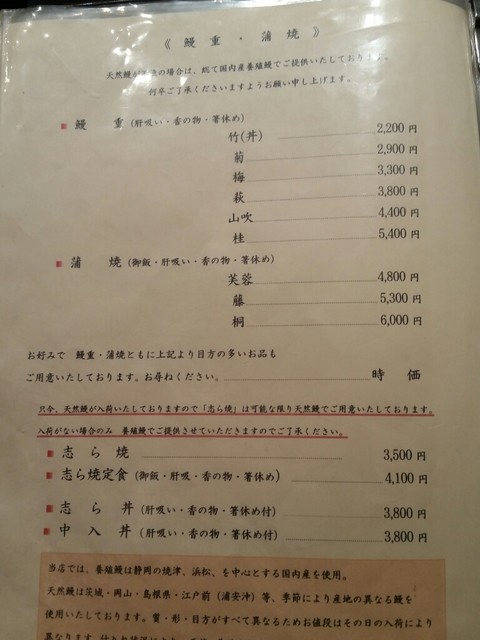 《 鰻 重 ・ 蒲 焼 》
天然鰻が の場合は、総て国内産養殖鰻でご提供いたしてお
何卒ご了承くださいますようお願い申し上げます。
鰻 重(肝吸い・香の物・箸休め)
竹(丼) 2,200 円
菊 2,900 円
梅 3,300 円
萩 3,800 円
山吹 4,400 円
桂 5,400 円
蒲 焼(御飯・肝吸い・香の物・箸休め)
芙蓉 4,800 円
藤 5,300 円
桐 6,000 円
お好みで 鰻重・蒲焼ともに上記より目方の多いお品も
ご用意いたしております。お尋ねください。 時 価
只今、天然鰻が入荷いたしておりますので「志ら焼」は可能な限り天然鰻でご用意いたしております。
入荷がない場合のみ 養殖鰻でご提供させていただきますのでご了承ください。
志 ら 焼 3,500 円
志ら焼定食(御飯・肝吸・香の物・箸休め) 4,100 円
志 ら 丼(肝吸い・香の物・箸休め付) 3,800 円
中 入 丼(肝吸い・香の物・箸休め付) 3,800 円
当店では、養殖鰻は静岡の焼津、浜松、を中心とする国内産を使用。
天然鰻は茨城・岡山・島根県・江戸前(浦安沖)等、季節により産地の異なる鰻を
使用いたしております。質・形・目方がすべて異なるためお値段はその日の入荷により
異なります。